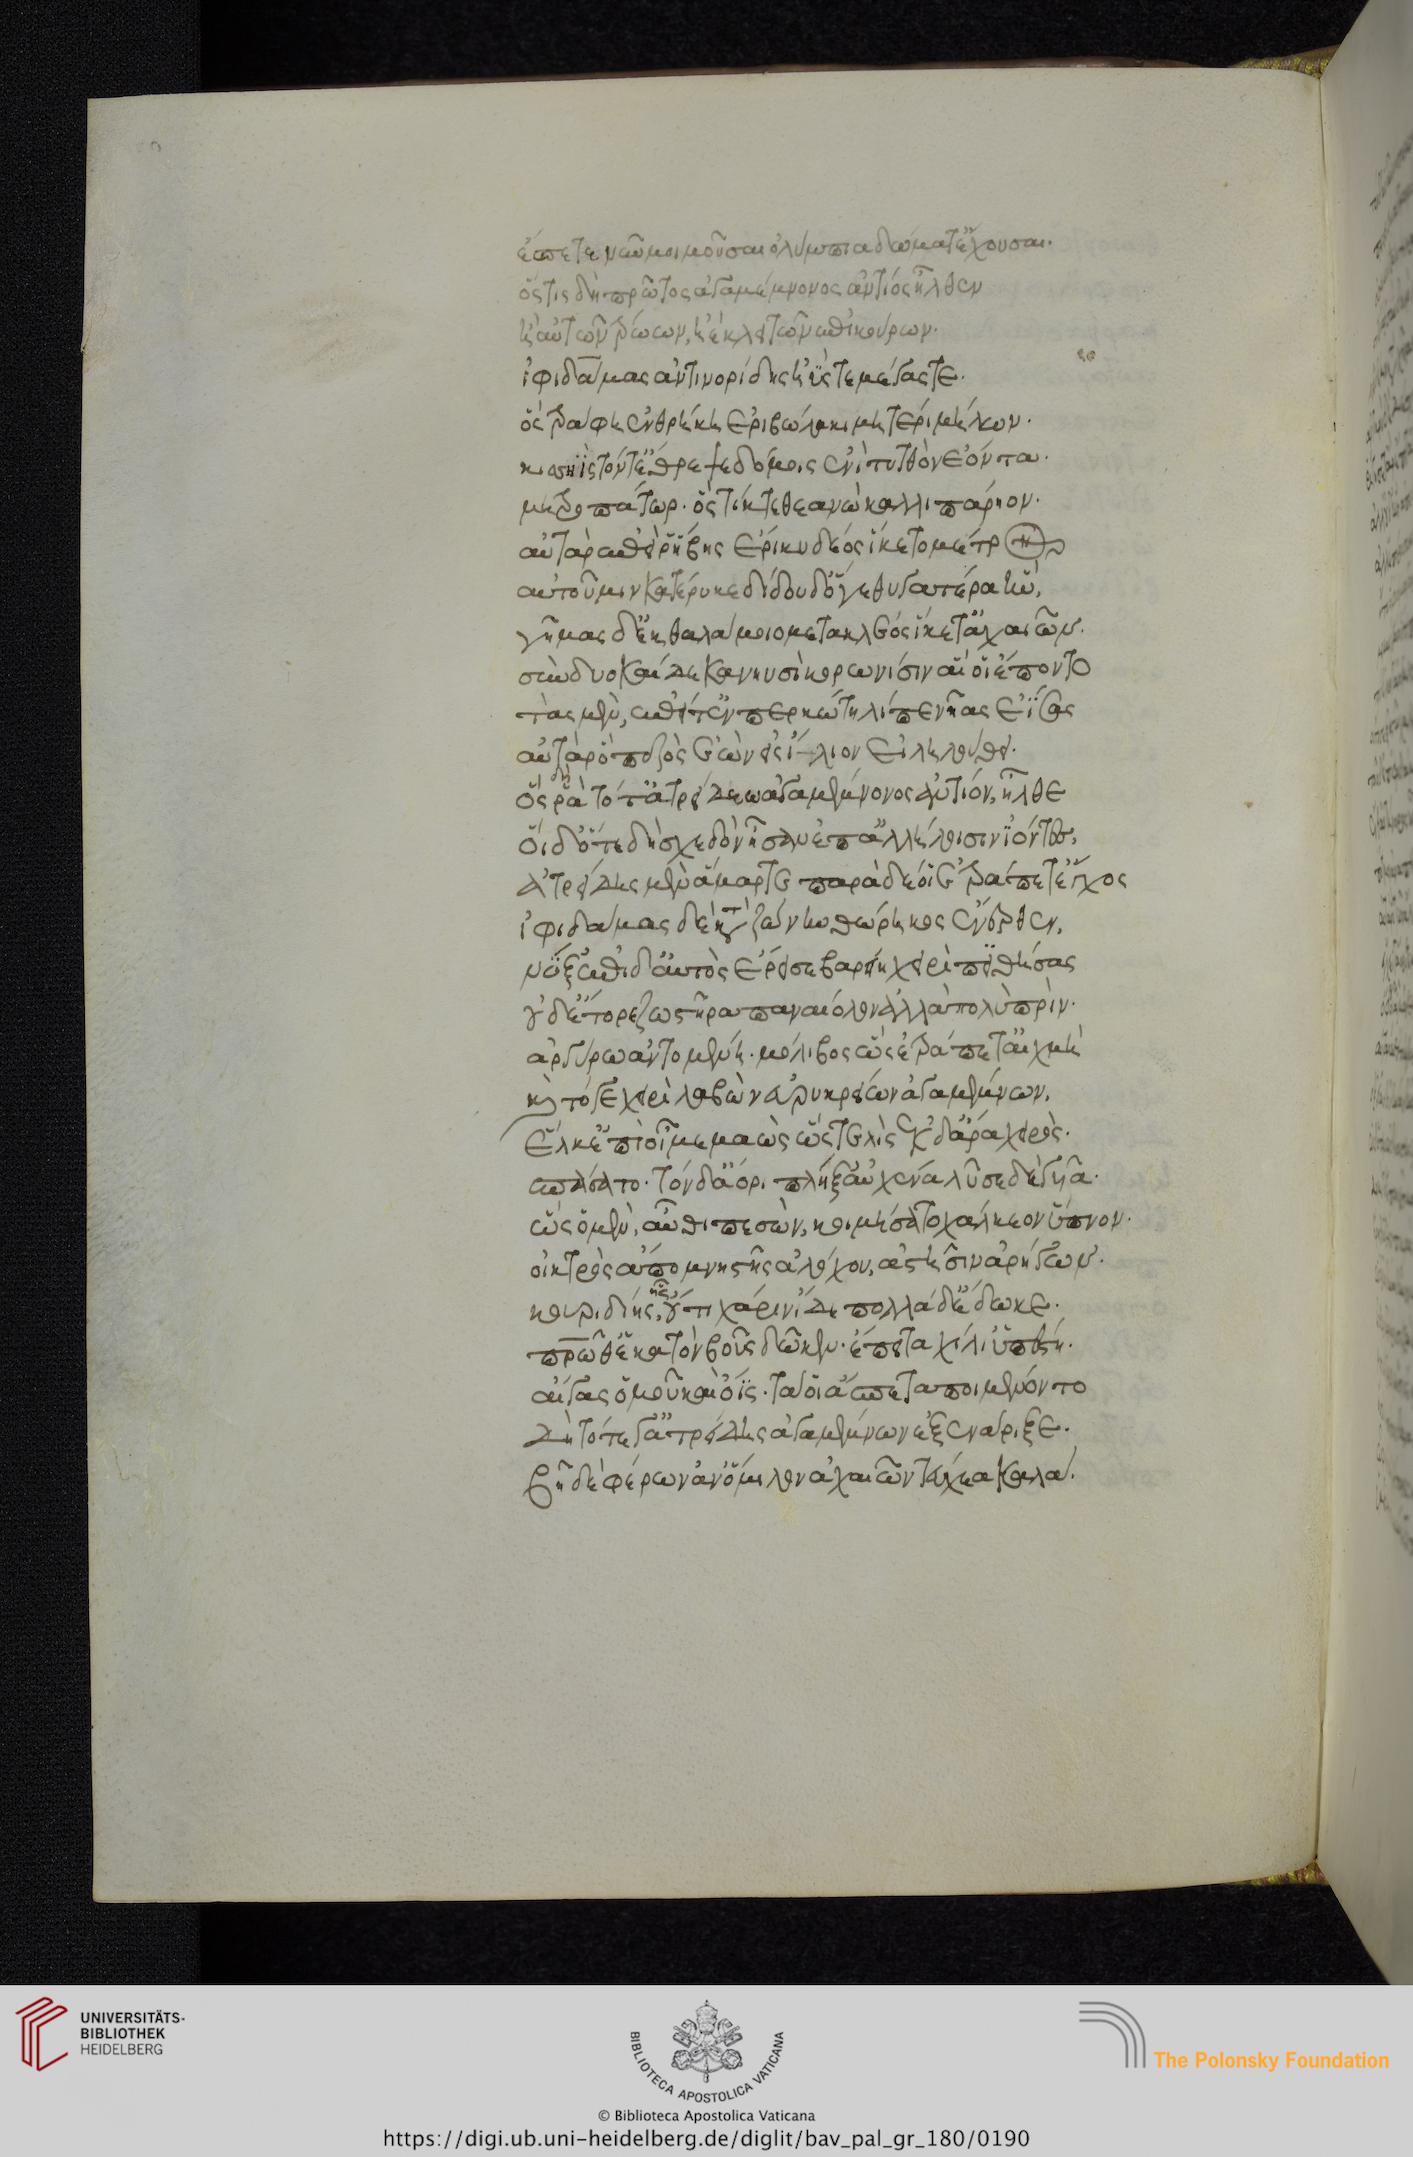 ἔσπετε νῦν μοι μοῦσαι ὀλύμπια δώματ' ἔχουσαι.
ὅστις δὴ πρῶτος ἀγαμέμνονος ἀντίος ἦλθεν
ἢ αὐτῶν τρώων, ἠὲ κλειτῶν ἐπικούρων.
ἰφιδάμας ἀντινορίδης ἠΰς τε μέγας τε.
ὃς τράφη ἐν θρήκη ἐριβώλακι μητέρι μήλων.
κισσηὶς τόν τ' ἔθρεψε δόμοις ἐνὶ τυτθὸν ἐόντα.
μητροπάτωρ. ὃς τίκτε θεανὼ καλλιπάρηον.
αὐτὰρ ἐπεὶ ῥ' ἥβης ἐρικυδέος ἵκετο μέτρον
αὐτοῦ μιν κατέρυκε δίδου δ' ὅγε θυγατέρα ἥν,
γῆμας δ' ἐκ θαλάμοιο μετὰ κλέος ἵκετ' ἀχαιῶν.
σὺν δυοκαίδεκα νηυσὶ κορωνίσιν αἵ οἱ ἕποντο
τὰς μὲν, ἔπειτ' ἐν περκώτη λίπε νῆας ἐΐσας
αὐτὰρ ὁ πεζὸς ἐὼν εἰς ἴλιον εἰληλούθει.
ὅς ῥα τότ' ἀτρείδεω ἀγαμέμνονος ἀντίον, ἦλθε
οἱ δ' ὅτε δὴ σχεδὸν ἦσαν ἐπ' ἀλλήλοισιν ἰόντες,
ἀτρείδης μὲν ἅμαρτε παρὰ δέ οἱ ἐτράπετ' ἔγχος
ἰφιδάμας δὲ κατὰ ζώνην θώρηκος ἔνερθεν,
νύξ' ἐπὶ δ' αὐτὸς ἔρεισε βαρείη χειρὶ πιθήσας
οὐδ' ἔτορε ζωστῆρα παναίολον ἀλλὰ πολὺ πρὶν.
ἀργύρω ἀντομένη. μόλιβος ὣς ἐτράπετ' αἰχμὴ
καὶ τόγε χειρὶ λαβὼν εὐρυκρείων ἀγαμέμνων,
ἕλκ' ἐπὶ οἷ μεμαὼς ὥστε λὶς ἐκ δ' ἄρα χειρὸς.
σπάσατο. τὸν δ' ἄορι πλῆξ' αὐχένα λῦσε δὲ γυῖα.
ὣς ὁ μὲν, αὖθι πεσὼν, κοιμήσατο χάλκεον ὕπνον.
οἰκτρὸς ἀπὸ μνηστῆς ἀλόχου, ἀστῆσιν ἀρήγων.
κουριδίης, ἧς οὔτι χάριν ἴδε πολλὰ δ' ἔδωκε.
πρῶθ' ἑκατὸν βοῦς δῶκεν. ἔπειτα χίλι' ὑπέστη.
αἶγας ὁμοῦ καὶ ὄϊς. τά οἱ ἄσπετα ποιμένοντο
δὴ τότε γ' ἀτρείδης ἀγαμέμνων ἐξενάριξε.
βῆ δὲ φέρων ἀν' ὅμιλον ἀχαιῶν τεύχεα καλά.
UNIVERSITÄTS-
BIBLIOTHEK
HEIDELBERG
BIBLIOTECA APOSTOLICA VATICANA
The Polonsky Foundation
© Biblioteca Apostolica Vaticana
https://digi.ub.uni-heidelberg.de/diglit/bav_pal_gr_180/0190